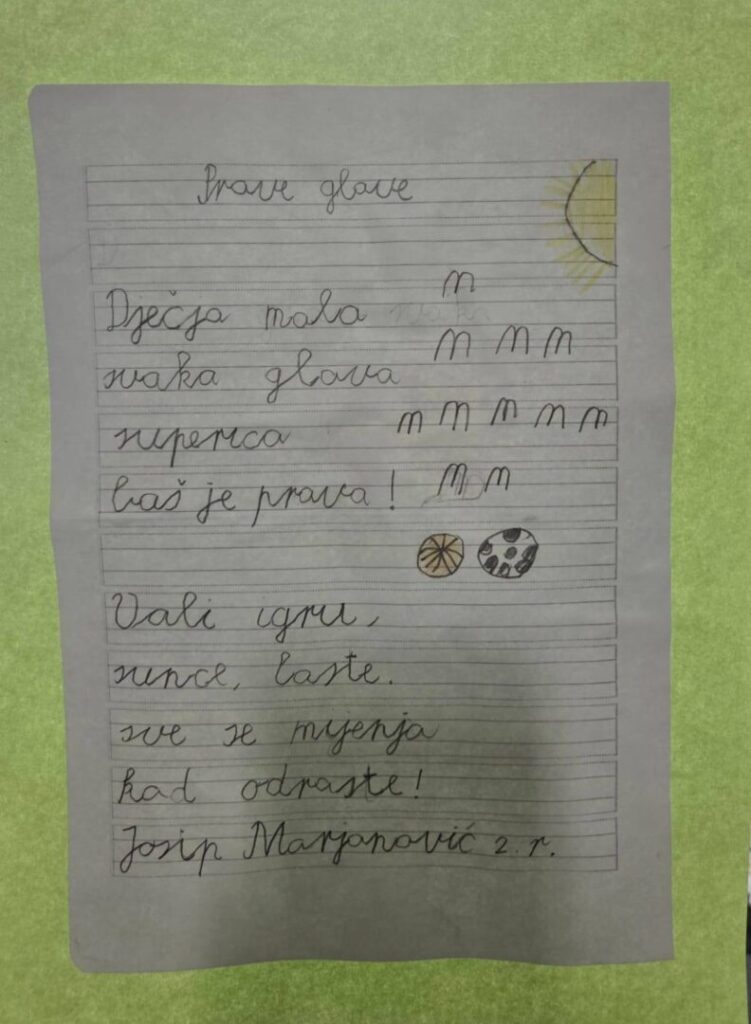 Prave glave
Dječja mala
svaka glava
superica
baš je prava!
Voli igru,
sunce, laste.
sve se mijenja
kad odraste!
Josip Marjanović 2. r.